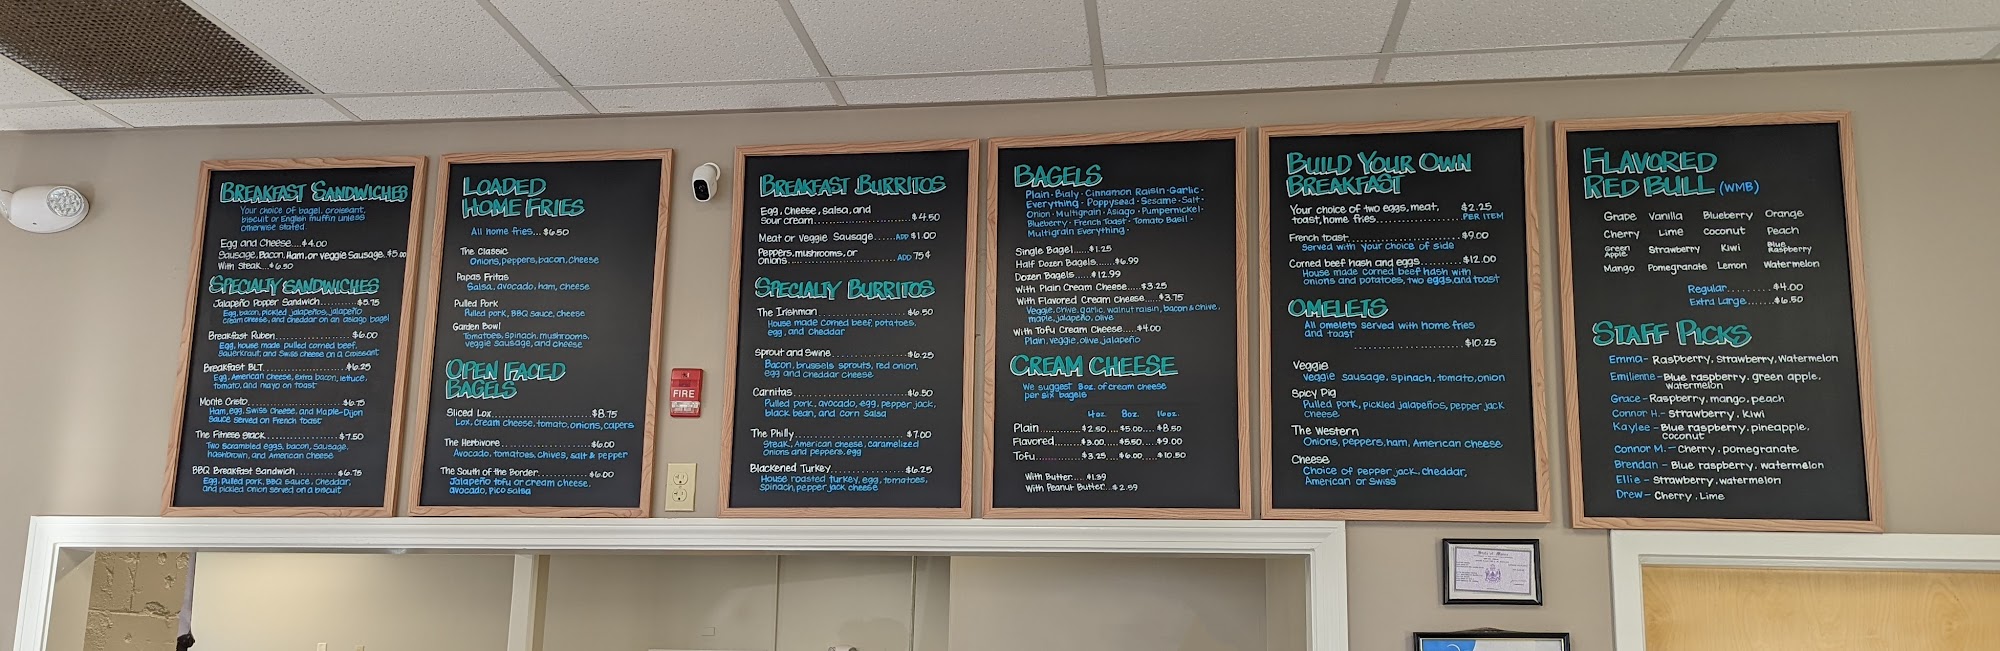 BREAKFAST SANDWICHES
Your choice of bagel, croissant,
biscuit or English muffin unless
otherwise stated
Egg and Cheese....$4.00
Sausage, Bacon, Ham, or Veggie Sausage..$5.00
With Steak...$6.50
SPECIALTY SANDWICHES
Jalapeño Popper Sandwich..........$5.75
Egg, bacon, pickled jalapeños, jalapeño
cream cheese, and cheddar on an asiago bagel
Breakfast Ruben....................$6.00
Egg, house made pulled corned beef,
Sauerkraut, and Swiss cheese on a croissant
Breakfast BLT....................$6.25
Egg, American Cheese, extra bacon, lettuce,
tomato, and mayo on toast
Monte Cristo....................$6.75
Ham, egg, Swiss cheese, and Maple-Dijon
Sauce served on French toast
The Fitness Stack..................$7.50
Two scrambled eggs, bacon, sausage,
hashbrown, and American cheese
BBQ Breakfast Sandwich..........$6.75
Egg, Pulled pork, BBQ sauce, Cheddar,
and pickled onion served on a biscuit
LOADED
HOME FRIES
All home fries...$6.50
The Classic
Onions, peppers, bacon, cheese
Papas Fritas
Salsa, avocado, ham, cheese
Pulled Pork
Pulled pork, BBQ sauce, cheese
Garden Bowl
Tomatoes, spinach, mushrooms,
veggie sausage, and cheese
OPEN FACED
BAGELS
Sliced Lox..........................$8.75
Lox, cream cheese, tomato, onions, capers
The Herbivore......................$6.00
Avocado, tomatoes, chives, salt & pepper
The South of the Border............$6.00
Jalapeño tofu or cream cheese,
avocado, pico salsa
FIRE
BREAKFAST BURRITOS
Egg, Cheese, salsa, and
Sour cream..........................$4.50
Meat or Veggie Sausage......ADD $1.00
Peppers, mushrooms, or
onions..........................ADD 75¢
SPECIALTY BURRITOS
The Irishman......................$6.50
House made corned beef, potatoes,
egg, and cheddar
Sprout and Swine..................$6.25
Bacon, brussels sprouts, red onion,
egg and cheddar cheese
Carnitas..........................$6.50
Pulled pork, avocado, egg, pepper jack,
black bean, and corn salsa
The Philly........................$7.00
Steak, American cheese, caramelized
Onions and peppers, egg
Blackened Turkey..................$6.25
House roasted turkey, egg, tomatoes,
Spinach, pepper jack cheese
BAGELS
Plain · Bialy · Cinnamon Raisin · Garlic ·
Everything · Poppyseed · Sesame · Salt ·
Onion · Multigrain · Asiago · Pumpernickel ·
Blueberry · French Toast · Tomato Basil ·
Multigrain Everything ·
Single Bagel......$1.25
Half Dozen Bagels.......$6.99
Dozen Bagels......$12.99
With Plain Cream Cheese....$3.25
With Flavored Cream Cheese.....$3.75
Veggie, chive, garlic, walnut raisin, bacon & chive,
maple, jalapeño, olive
With Tofu Cream Cheese.....$4.00
Plain, veggie, olive, jalapeño
CREAM CHEESE
We suggest 8oz. of cream cheese
per six bagels
4oz. 8oz. 16oz.
Plain..........$2.50....$5.00....$8.50
Flavored......$3.00....$5.50....$9.00
Tofu..........$3.25....$6.00....$10.50
With Butter.....$1.39
With Peanut Butter...$2.59
BUILD YOUR OWN
BREAKFAST
Your choice of two eggs, meat, $2.25
toast, home fries..................PER ITEM
French toast........................$9.00
Served with your choice of side
Corned beef hash and eggs..........$12.00
House made corned beef hash with
onions and potatoes, two eggs, and toast
OMELETS
All omelets served with home fries
and toast
..........................$10.25
Veggie
Veggie sausage, spinach, tomato, onion
Spicy Pig
Pulled pork, pickled jalapeños, pepper jack
cheese
The Western
Onions, peppers, ham, American cheese
Cheese
Choice of pepper jack, cheddar,
American or Swiss
FLAVORED
RED BULL (WMB)
Grape Vanilla Blueberry Orange
Cherry Lime Coconut Peach
Green Apple Strawberry Kiwi Blue Raspberry
Mango Pomegranate Lemon Watermelon
Regular..........$4.00
Extra Large......$6.50
STAFF PICKS
Emma - Raspberry, Strawberry, Watermelon
Emilienne - Blue raspberry, green apple,
watermelon
Grace - Raspberry, mango, peach
Connor H. - Strawberry, kiwi
Kaylee - Blue raspberry, pineapple,
coconut
Connor M. - Cherry, pomegranate
Brendan - Blue raspberry, watermelon
Ellie - Strawberry, watermelon
Drew - Cherry, Lime
State of Maine